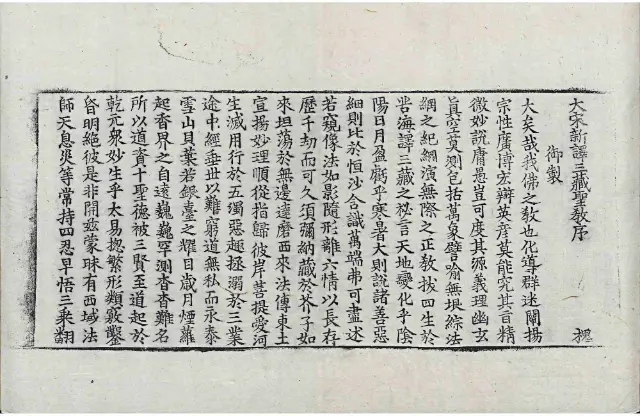 大宋新譯三藏聖教序
槐
御製
大矣哉我佛之教也化導群迷闡揚
宗性廣博宏辯英彥莫能究其旨精
微妙說庸愚豈可度其源義理幽玄
真空莫測包括萬象譬喻無垠綜法
網之紀綱演無際之正教拔四生於
苦海譯三藏之秘言天地變化乎陰
陽日月盈虧乎寒暑大則說諸善惡
細則比於恒沙含識萬端弗可盡述
若窺像法如影隨形離六情以長存
歷千劫而可久須彌納藏於芥子如
來坦蕩於無邊達磨西來法傳東土
宣揚妙理順從指歸彼岸菩提愛河
生滅用行於五濁惡趣拯溺於三業
途中經垂世以難窮道無私而永泰
雪山貝葉若銀臺之耀目歲月煙蘿
起香界之自遠巍巍罕測杳杳難名
所以道資十聖德被三賢至道起於
乾元衆妙生乎太易揔繁形類竅鑿
昏明絕彼是非開兹蒙昧有西域法
師天息災等常持四忍早悟三乘翻